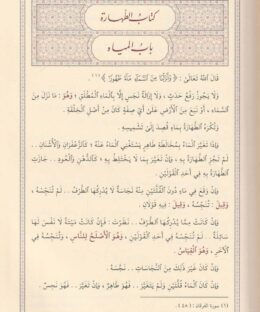 كتاب الطهارة
باب المياه
قال الله تعالى : ﴿ وَأَنزَلْنَا مِنَ ٱلسَّمَآءِ مَآءً طَهُورًا ﴾ (١) .
ولا يجوز رفع حدث ، ولا إزالة نجس إلا بالماء المطلق ؛ وهو : ما نزل من
السماء ، أو نبع من الأرض على أي صفة كان من أصل الخلقة .
وتكره الطهارة بماء قصد إلى تشميسه .
وإذا تغير الماء بمخالطة طاهر يستغني الماء عنه ؛ كالزعفران والأشنان ..
لم تجز الطهارة به ، وإن تغير بما لا يختلط به ؛ كالدهن والعود .. جازت
الطهارة به في أحد القولين .
وإن وقع في ماء دون القلتين منه نجاسة لا يدركها الطرف .. لم تنجسه ،
وقيل : تنجسه ، وقيل : فيه قولان .
وإن كانت مما يدركها الطرف .. نظرت : فإن كانت ميتة لا نفس لها
سائلة .. لم تنجسه في أحد القولين ، وهو الأصلح للناس ، وتنجسه في
الآخر ، وهو القياس .
وإن كان غير ذلك من النجاسات .. نجسه .
وإن كان الماء قلتين ولم يتغير .. فهو طاهر ، وإن تغير .. فهو نجس .
(١) سورة الفرقان : ( ٤٨ ) .